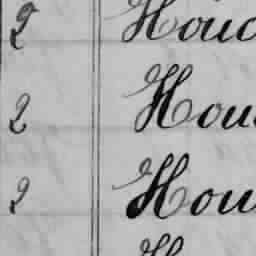 2 Houc
2 Hou
2 Hou
H